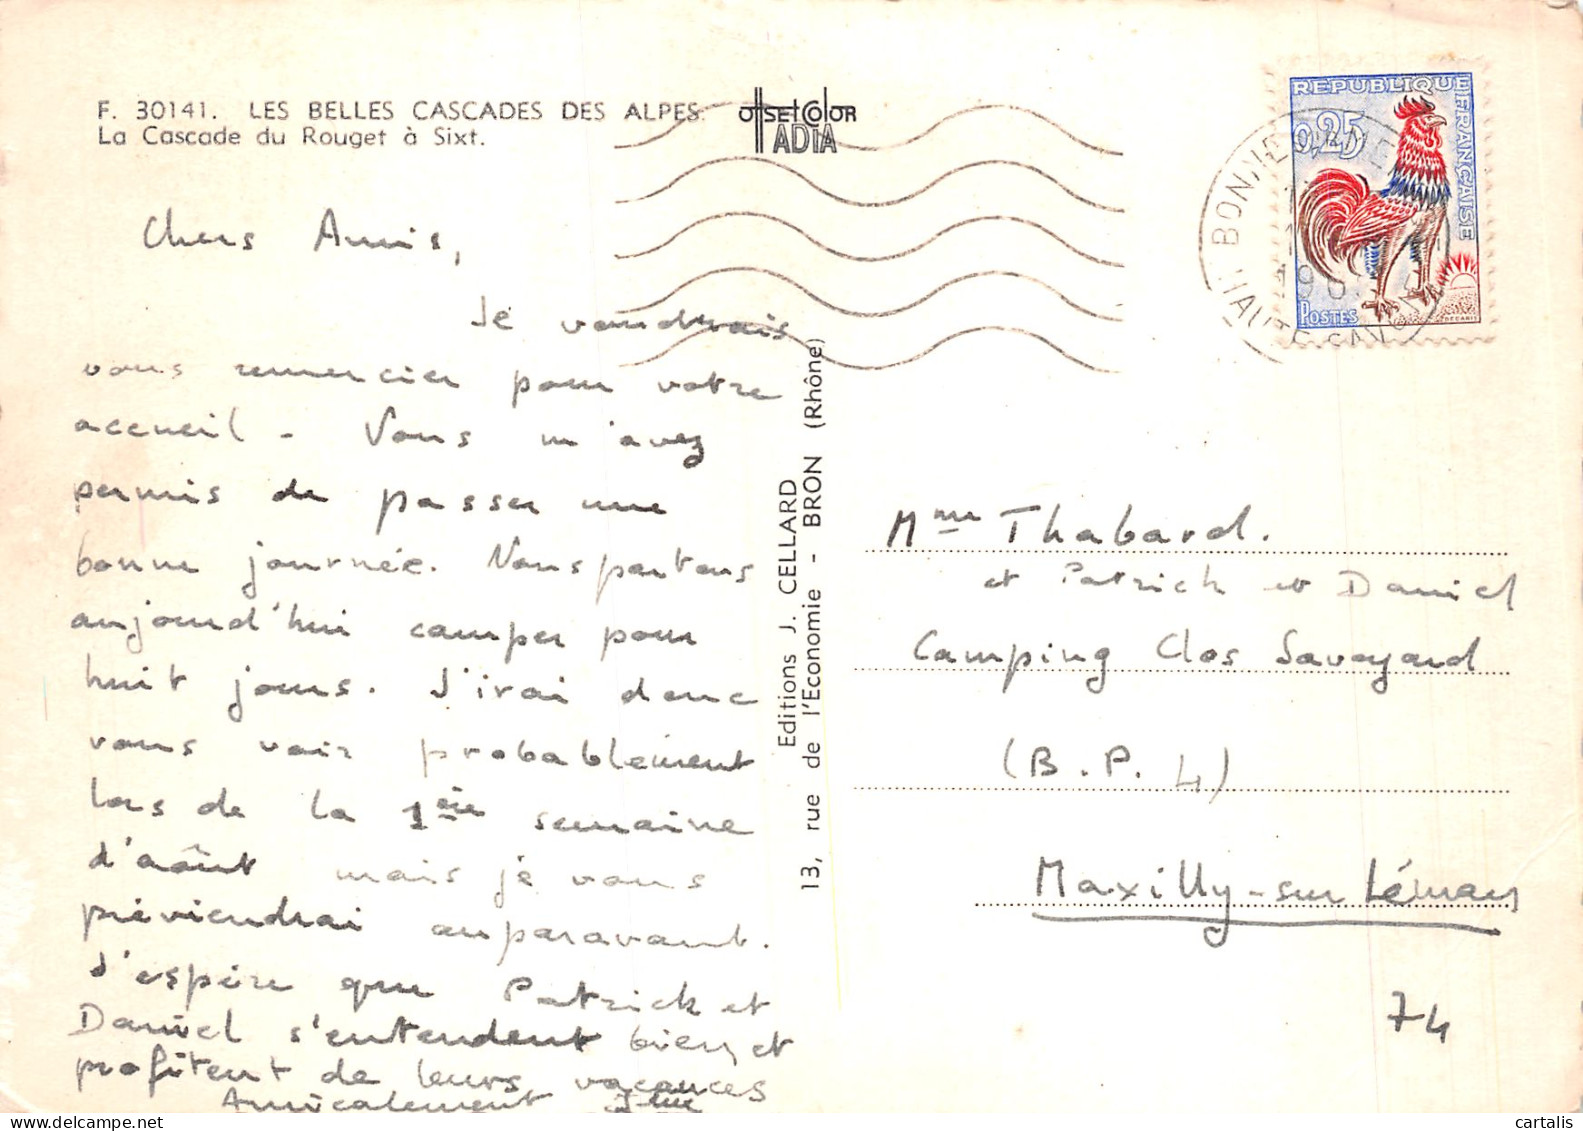 F. 30141. LES BELLES CASCADES DES ALPES.
La Cascade du Rouget à Sixt.
OffsetColor
ADIA
REPUBLIQUE
FRANÇAISE
0,25
POSTES
DECARIS
BONNEVILLE
196
HAUTE SAVOIE
Chers Amis,
Je voudrais
vous remercier pour votre
accueil - Vous m'avez
permis de passer une
bonne journée. Nous partons
aujourd'hui camper pour
huit jours. J'irai donc
vous voir probablement
lors de la 1ère semaine
d'août mais je vous
préviendrai auparavant.
J'espère que Patrick et
Daniel s'entendent bien et
profitent de leurs vacances
Amicalement
Editions J. CELLARD
13, rue de l'Economie - BRON (Rhône)
Mme Thabard.
et Patrick et Daniel
Camping Clos Savoyard
(B.P. 4)
Maxilly-sur Léman
74
cartalis